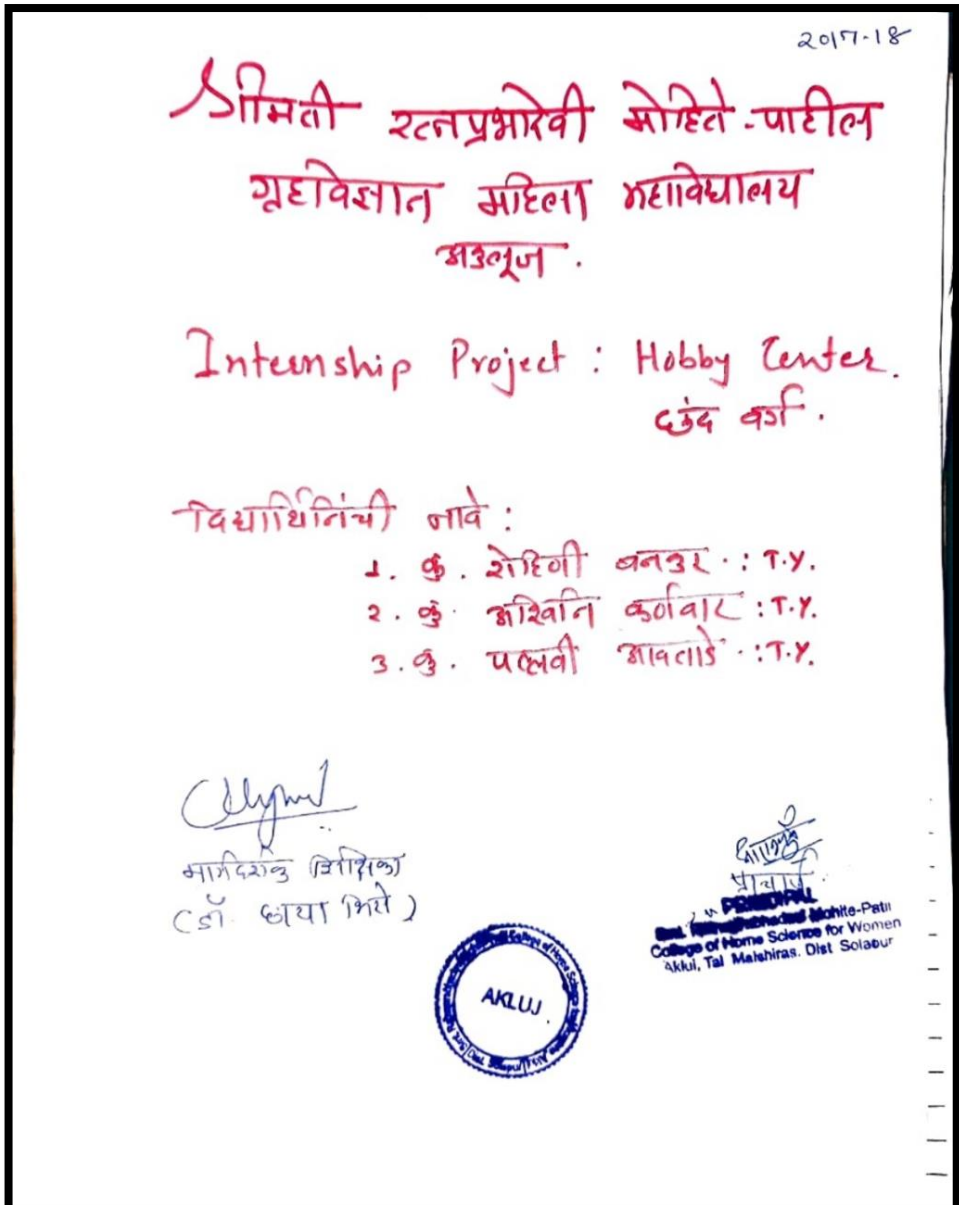 2017-18
श्रीमती रत्नप्रभादेवी मोहिते-पाटील
गृहविज्ञान महिला महाविद्यालय
अकलूज.
Internship Project : Hobby Center.
छंद वर्ग.
विद्यार्थिनिंची नावे :
1. कु. रोहिणी बनकर. : T.Y.
2. कु. अश्विनि कर्णवार : T.Y.
3. कु. पल्लवी आवताडे. : T.Y.
मार्गदर्शक शिक्षिका
(डॉ. छाया भिसे)
प्राचार्य
PRINCIPAL
Smt. Mohite-Patil
College of Home Science for Women
Akluj, Tal Malshiras. Dist Solapur
AKLUJ